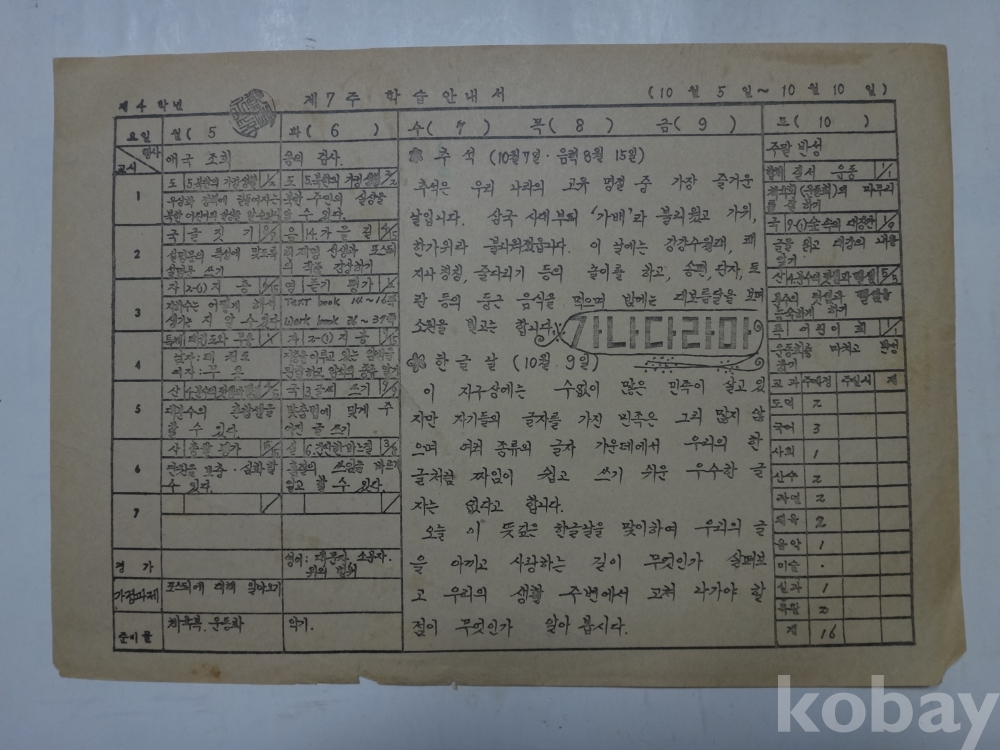 제 4 학년
제 7 주 학 습 안 내 서
(10 월 5 일 ~ 10 월 10 일)
요일
행사
교시
월( 5
화( 6 )
수( 7 ) 목( 8 ) 금( 9 )
토( 10 )
애국 조회
용의 검사.
주말 반성
1
도 5.북한의 가정생활
도 5.북한의 가정생활 2/2
북한 주민의 실상을
할 수 있다.
2
국 글 짓 기
설명문의 특성에 맞도록
설명문 쓰기
음 14.가 을 길
의 작품 감상하기
3
자 2-(1) 지 층
생기는 지 알 수 있다
영 듣기 평가
Text book 14~16쪽
Work book 36~37쪽
4
여자: 무 용
자 2-(1) 지 층
5
대분수의 혼합셈을
할 수 있다.
국 3.글씨 쓰기
맞춤법에 맞게 주
어진 글 쓰기
6
사 총괄 평가
수 있다.
알고 할 수 있다.
7
평 가
영어: 대문자 소문자.
가정과제
포스터에 대해 알아오기
준비물
체육복. 운동화
악기.
추 석 (10월 7일 · 음력 8월 15일)
추석은 우리 나라의 고유 명절 중 가장 즐거운
날입니다. 삼국 시대부터 '가배'라 불리웠고 가위,
한가위라 불리워졌습니다. 이 날에는 강강수월래, 쾌
지나 칭칭, 줄다리기 등의 놀이를 하고, 송편, 단자, 토
란 등의 둥근 음식을 먹으며 밤에는 대보름달을 보며
소원을 빌고는 합니다.
가나다라마
한 글 날 (10월 9일)
이 지구상에는 수없이 많은 민족이 살고 있
지만 자기들의 글자를 가진 민족은 그리 많지 않
으며 여러 종류의 글자 가운데에서 우리의 한
글처럼 짜임이 쉽고 쓰기 쉬운 우수한 글
자는 없다고 합니다.
오늘 이 뜻깊은 한글날을 맞이하여 우리의 글
을 아끼고 사랑하는 길이 무엇인가 살펴보
고 우리의 생활 주변에서 고쳐 나가야 할
점이 무엇인가 알아 봅시다.
체육회(운동회)의 마무리
를 잘 하기
글을 읽고 대강의 내용
알기
분수의 덧셈과 뺄셈을
능숙하게 하기
특 어린이회 /1
운동회를 마치고 반성
하기
교 과 계
도덕 2
국어 3
사회 1
산수 2
자연 2
체육 2
음악 1
미술 ·
실과 1
특활 2
계 16
kobay